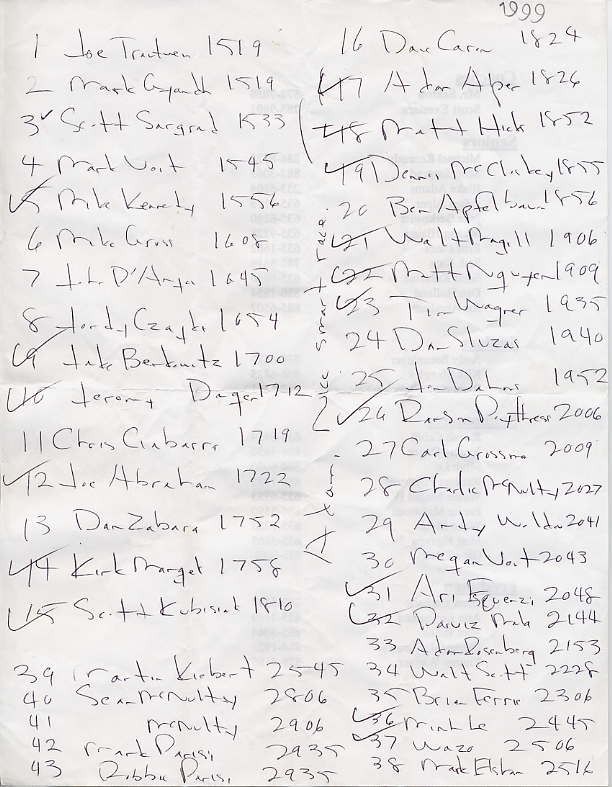 1999
1 Joe Trautwen 1519
2 Mark 1519
3 Scott Sargrad 1533
4 Mark Voit 1545
5 Mike Kennedy 1556
6 Mike Gross 1608
7 John D'Angelo 1645
8 Jordy Czajka 1654
9 Jake Berkowitz 1700
10 Jeromy Dager 1712
11 Chris Ciabarra 1719
12 Joe Abraham 1722
13 Dan Zabara 1752
14 Kirk Marget 1758
15 Scott Kubisiak 1810
39 Martin Kiebert 2545
40 Sean McNulty 2806
41 McNulty 2906
42 Mark Parisi 2935
43 Robbie Parisi 2935
16 Dave Caron 1824
17 Adam Alper 1826
18 Matt Hick 1852
19 Dennis McCloskey 1855
20 Ben Apfelbaum 1856
21 Walt Magill 1906
22 Matt Nguyen 1909
23 Tim Wagner 1935
24 Dan Sluzas 1940
25 Jon 1952
26 2006
27 Carl Grossman 2009
28 Charlie McNulty 2027
29 Andy Walton 2041
30 Megan Voit 2043
31 Ari 2048
32 2144
33 Adam Rosenberg 2153
34 Walt Scott 2228
35 Brian Ferrie 2306
36 Minh Le 2445
37 Wazo 2506
38 Mark 2516
Smart race